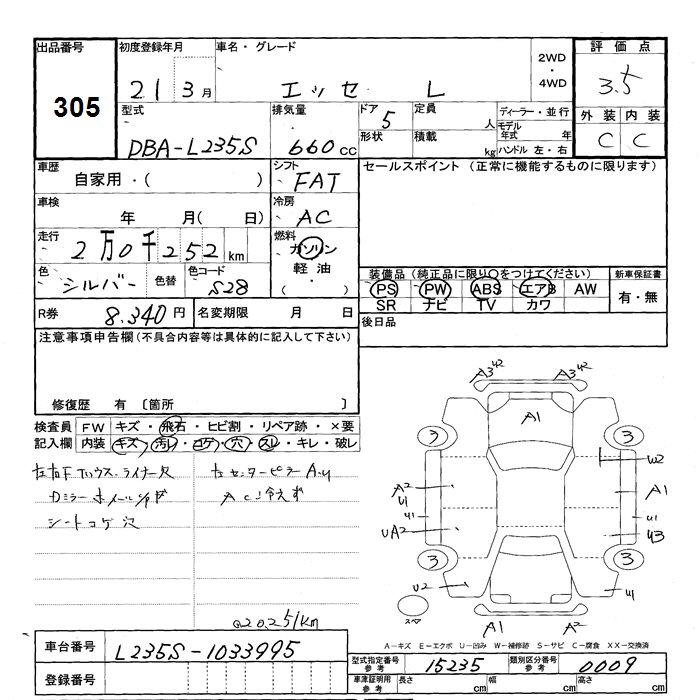 出品番号
305
初度登録年月
21 3月
車名・グレード
エッセ L
2WD
・
4WD
評価点
3.5
型式
DBA-L235S
排気量
660 cc
ドア 5
形状
定員 人
積載 kg
ディーラー・並行
モデル年式 年
ハンドル 左・右
外装 内装
C C
車歴
自家用・( )
シフト
FAT
セールスポイント (正常に機能するものに限ります)
車検
年 月( 日)
冷房
AC
走行
2万0千252km
燃料
ガソリン
軽油
・
( )
色
シルバー
色替
色コード
S28
装備品(純正品に限り○をつけてください)
PS PW ABS エアB AW
SR ナビ TV カワ
新車保証書
有・無
R券 8.340円
名変期限 月 日
後日品
注意事項申告欄(不具合内容等は具体的に記入して下さい)
修復歴 有 〔箇所 〕
検査員 FW キズ・飛石・ヒビ割・リペア跡・×要
記入欄 内装 キズ・汚レ・コゲ・穴・スレ・キレ・破レ
左右Fインナーライナー欠
左センターピラーA,U
AC冷えず
シートコゲ穴
@20251km
A3 42
A3 42
A1
3
3
A2
U1
U1
UA2
U2
W2
A1
U1
U3
3
3
U1
スペア
A1
A2
A－キズ E－エクボ U－凹み W－補修跡 S－サビ C－腐食 XX－交換済
車台番号 L235S-1033995
登録番号
型式指定番号 参考 15235
類別区分番号 参考 0009
車庫証明用 参考 長さ cm 幅 cm 高さ cm